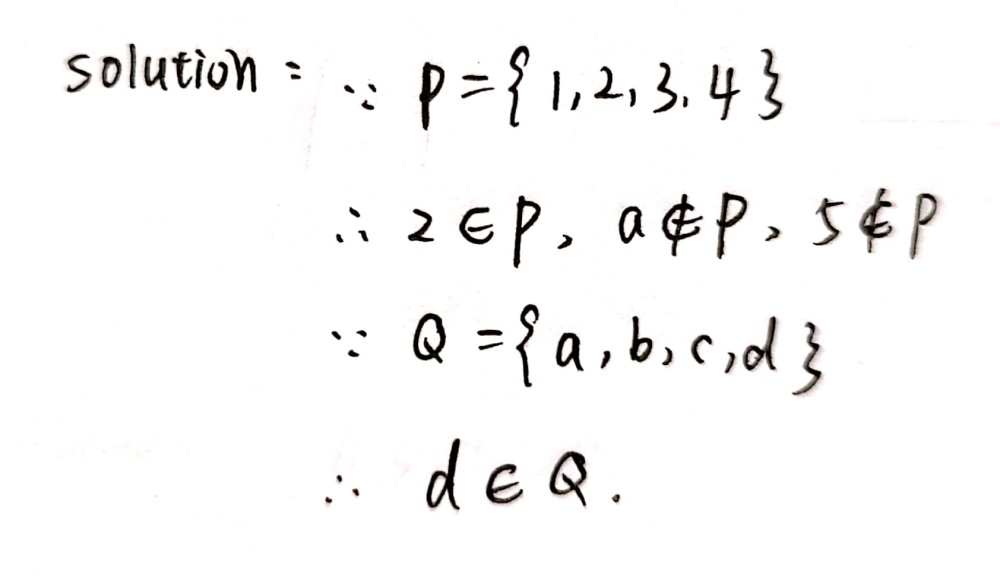 solution: ∵ P={1,2,3,4}
∴ 2∈P, a∉P, 5∉P
∵ Q={a,b,c,d}
∴ d∈Q.